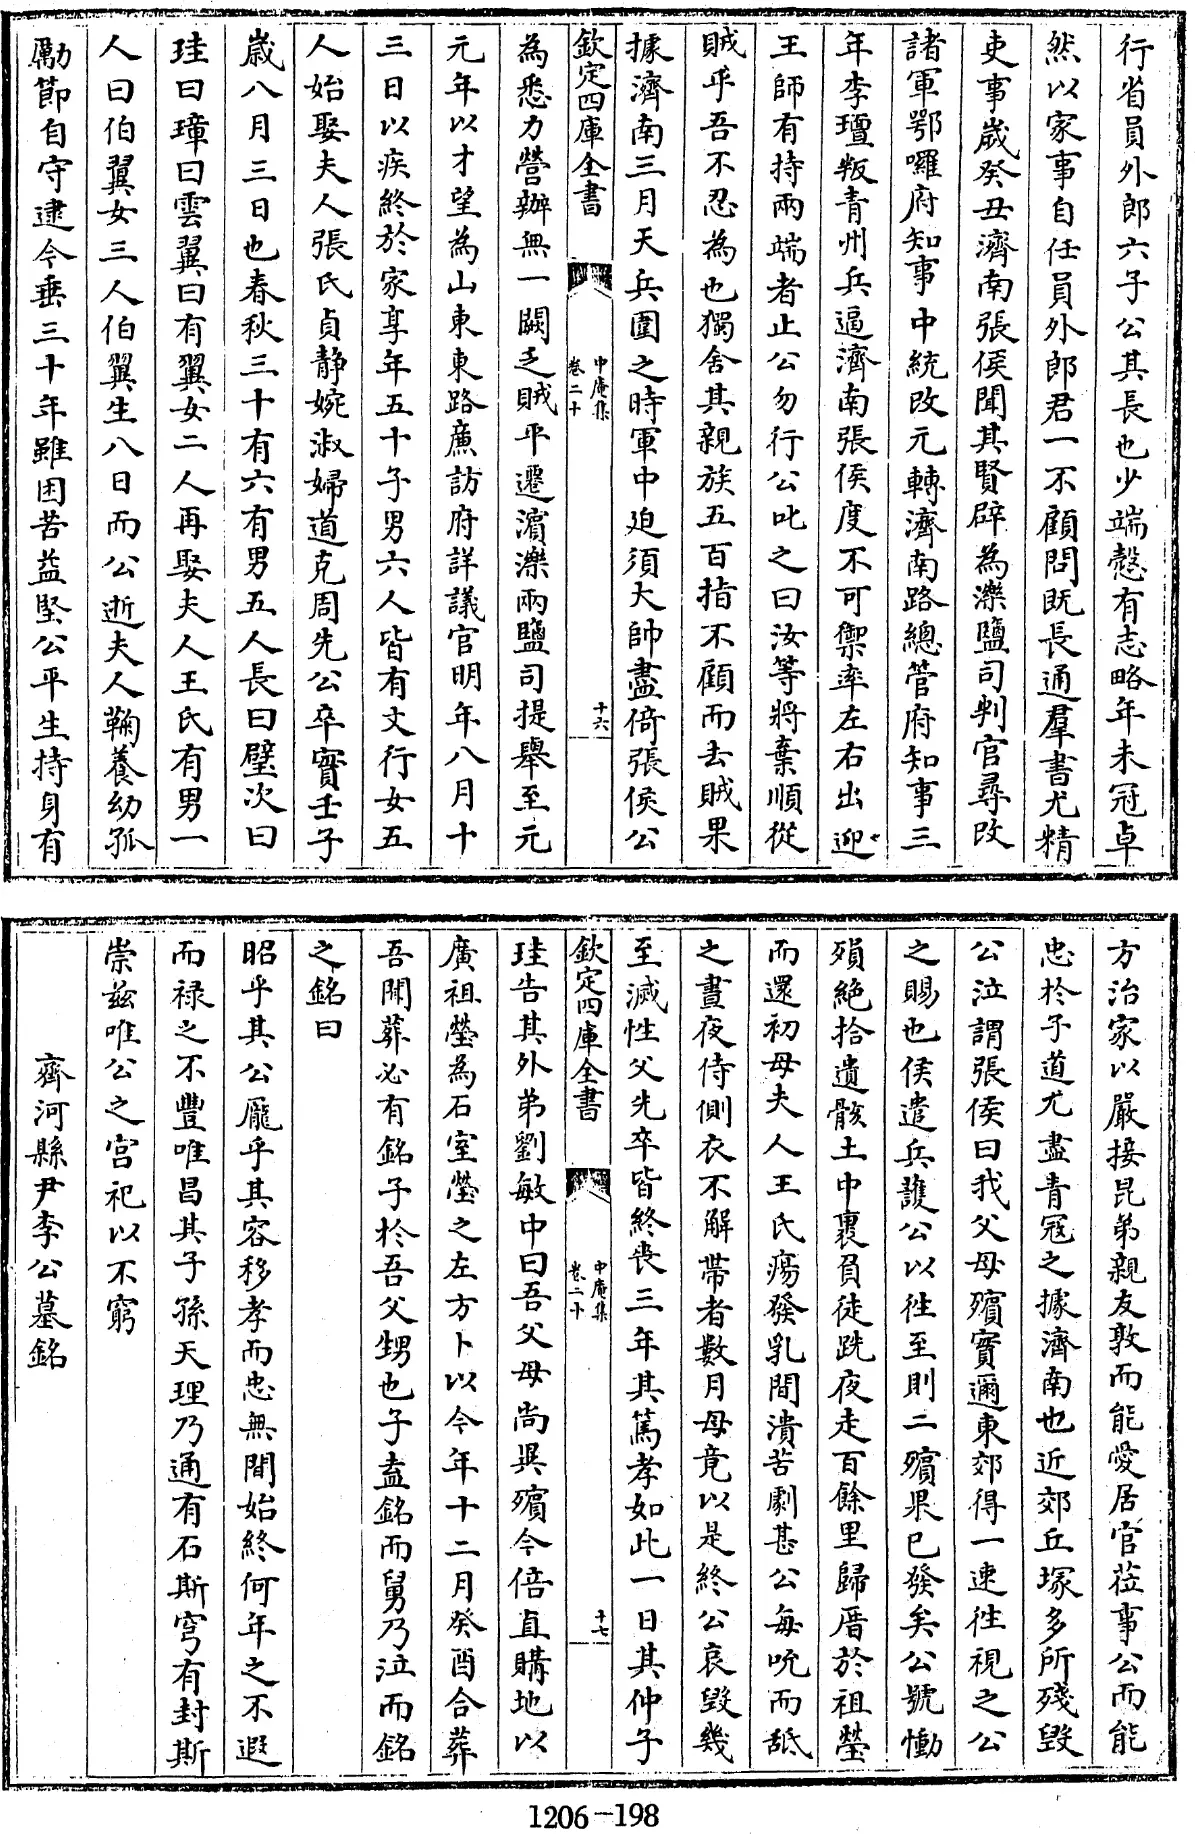 行省員外郎六子公其長也少端慤有志略年未冠卓
然以家事自任員外郎君一不顧問既長通羣書尤精
吏事歲癸丑濟南張侯聞其賢辟為濼鹽司判官尋改
諸軍鄂囉府知事中統改元轉濟南路總管府知事三
年李璮叛青州兵逼濟南張侯度不可禦率左右出迎
王師有持兩端者止公勿行公叱之曰汝等將棄順從
賊乎吾不忍為也獨舍其親族五百指不顧而去賊果
據濟南三月天兵圍之時軍中廹須大帥盡倚張侯公
欽定四庫全書
中庵集
卷二十
十六
為悉力營辦無一闕乏賊平遷濱濼兩鹽司提舉至元
元年以才望為山東東路廉訪府詳議官明年八月十
三日以疾終於家享年五十子男六人皆有文行女五
人始娶夫人張氏貞靜婉淑婦道克周先公卒實壬子
歲八月三日也春秋三十有六有男五人長曰璧次曰
珪曰璋曰雲翼曰有翼女二人再娶夫人王氏有男一
人曰伯翼女三人伯翼生八日而公逝夫人鞠養幼孤
勵節自守逮今垂三十年雖困苦益堅公平生持身有
方治家以嚴接昆弟親友敦而能愛居官莅事公而能
忠於子道尤盡青冦之據濟南也近郊丘塚多所殘毀
公泣謂張侯曰我父母殯實邇東郊得一速徃視之公
之賜也侯遣兵護公以徃至則二殯果已發矣公號慟
殞絶拾遺骸土中裹負徒跣夜走百餘里歸厝於祖塋
而還初母夫人王氏瘍發乳間潰苦劇甚公每吮而舐
之晝夜侍側衣不解帶者數月母竟以是終公哀毀幾
至滅性父先卒皆終喪三年其篤孝如此一日其仲子
欽定四庫全書
中庵集
卷二十
十七
珪告其外弟劉敏中曰吾父母尚異殯今倍直購地以
廣祖塋為石室塋之左方卜以今年十二月癸酉合葬
吾聞葬必有銘子於吾父甥也子盍銘而舅乃泣而銘
之銘曰
昭乎其公龎乎其容移孝而忠無間始終何年之不遐
而禄之不豐唯昌其子孫天理乃通有石斯穹有封斯
崇兹唯公之宫祀以不窮
齊河縣尹李公墓銘
1206-198